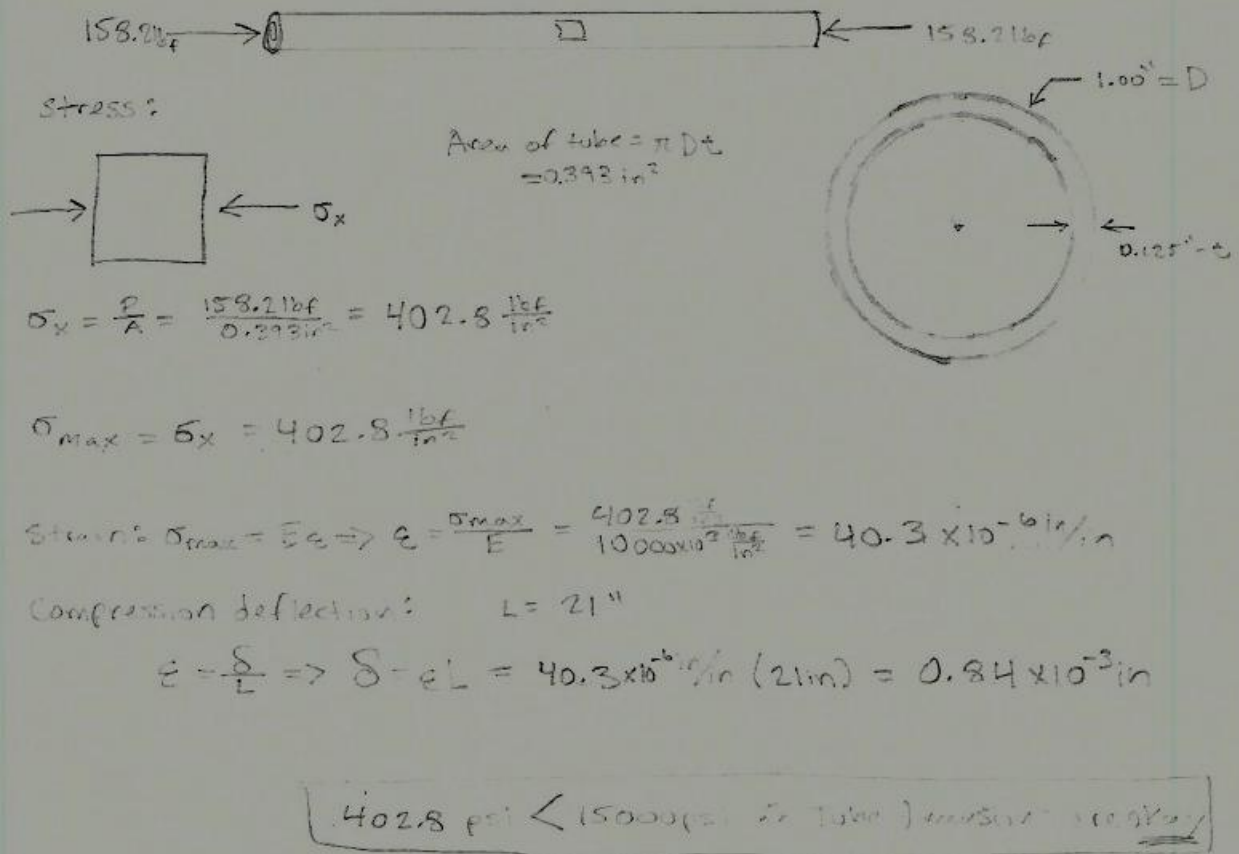 158.2lbf
158.2lbf
1.00" = D
Stress:
Area of tube = π D t
= 0.393 in²
σx
0.125" - t
σx = P/A = 158.2 lbf / 0.393 in² = 402.8 lbf/in²
σmax = σx = 402.8 lbf/in²
Strain: σmax = Eε => ε = σmax/E = 402.8 / 10000x10³ lbf/in² = 40.3 x10⁻⁶ in/in
Compression deflection: L = 21"
ε - δ/L => δ - εL = 40.3x10⁻⁶ in/in (21in) = 0.84 x10⁻³ in
402.8 psi < 15000 psi ∴ Tube